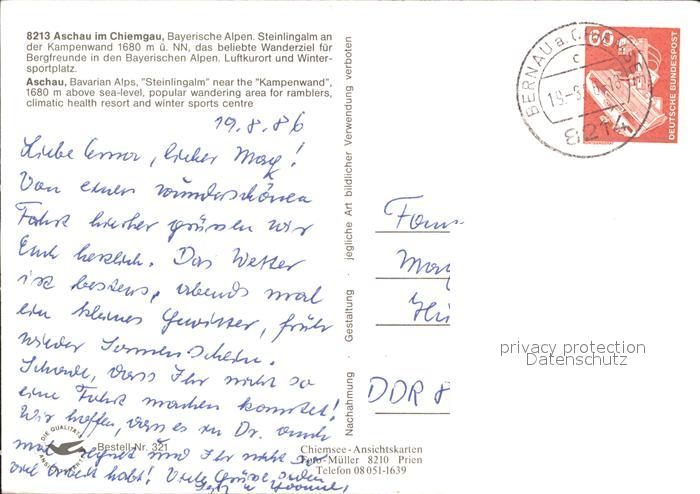 8213 Aschau im Chiemgau, Bayerische Alpen. Steinlingalm an
der Kampenwand 1680 m ü. NN, das beliebte Wanderziel für
Bergfreunde in den Bayerischen Alpen. Luftkurort und Winter-
sportplatz.
Aschau, Bavarian Alps, "Steinlingalm" near the "Kampenwand",
1680 m above sea-level, popular wandering area for ramblers,
climatic health resort and winter sports centre
19.8.86
Liebe Erna, lieber Max!
Von einer wunderschönen
Fahrt hierher grüssen wir
Euch herzlich. Das Wetter
ist bestens, abends mal
ein kleines Gewitter, früh
wieder Sonnenschein.
Schade, dass Ihr nicht so
eine Fahrt machen konntet!
Wir hoffen, dass es zu Dr. auch
mal regnet und Ihr nicht so
viel Arbeit habt! Viele Grüsse
DIE QUALITÄTS
Bestell-Nr. 321
Nachahmung · Gestaltung · jegliche Art bildlicher Verwendung verboten
Chiemsee-Ansichtskarten
Foto-Müller 8210 Prien
Telefon 08051-1639
BERNAU a. CHIEMSEE
8214
60
DEUTSCHE BUNDESPOST
Fam
DDR 8
privacy protection
Datenschutz